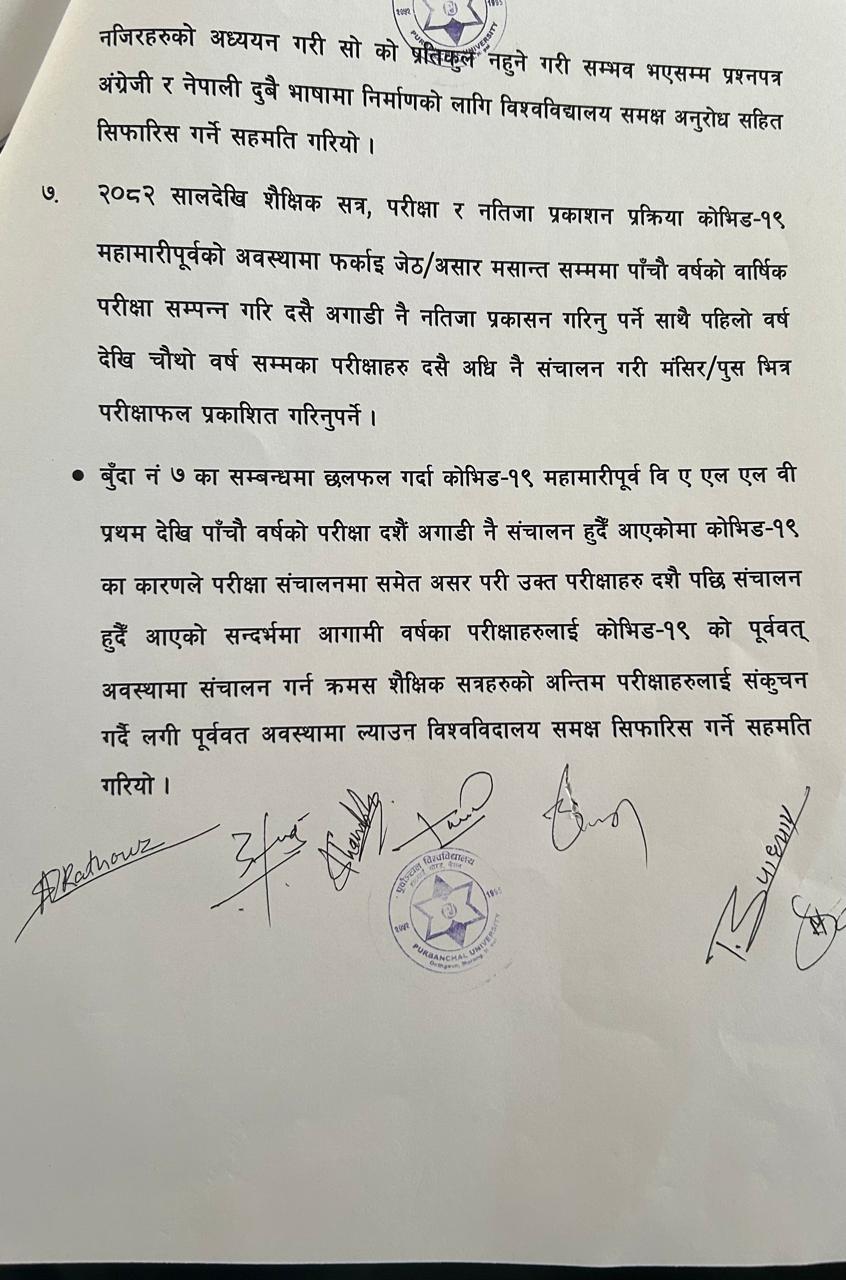 २०५२ 1995
PURBANCHAL UNIVERSITY
नजिरहरुको अध्ययन गरी सो को प्रतिकुल नहुने गरी सम्भव भएसम्म प्रश्नपत्र
अंग्रेजी र नेपाली दुबै भाषामा निर्माणको लागि विश्वविद्यालय समक्ष अनुरोध सहित
सिफारिस गर्ने सहमति गरियो ।
७. २०८२ सालदेखि शैक्षिक सत्र, परीक्षा र नतिजा प्रकाशन प्रक्रिया कोभिड-१९
महामारीपूर्वको अवस्थामा फर्काइ जेठ/असार मसान्त सम्ममा पाँचौ वर्षको वार्षिक
परीक्षा सम्पन्न गरि दसै अगाडी नै नतिजा प्रकासन गरिनु पर्ने साथै पहिलो वर्ष
देखि चौथो वर्ष सम्मका परीक्षाहरु दसै अधि नै संचालन गरी मंसिर/पुस भित्र
परीक्षाफल प्रकाशित गरिनुपर्ने ।
• बुँदा नं ७ का सम्बन्धमा छलफल गर्दा कोभिड-१९ महामारीपूर्व वि ए एल एल वी
प्रथम देखि पाँचौ वर्षको परीक्षा दशैं अगाडी नै संचालन हुदैँ आएकोमा कोभिड-१९
का कारणले परीक्षा संचालनमा समेत असर परी उक्त परीक्षाहरु दशै पछि संचालन
हुदैँ आएको सन्दर्भमा आगामी वर्षका परीक्षाहरुलाई कोभिड-१९ को पूर्ववत्
अवस्थामा संचालन गर्न क्रमस शैक्षिक सत्रहरुको अन्तिम परीक्षाहरुलाई संकुचन
गर्दै लगी पूर्ववत अवस्थामा ल्याउन विश्वविदालय समक्ष सिफारिस गर्ने सहमति
गरियो ।
पूर्वाञ्चल विश्वविद्यालय
२०५२ 1995
PURBANCHAL UNIVERSITY